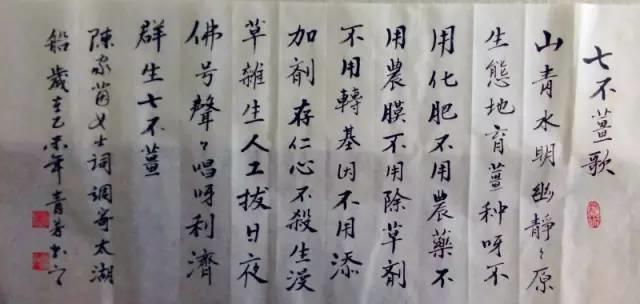 七不薑歌
山青水明幽靜〻原
生態地育薑種呀不
用化肥不用農藥不
用農膜不用除草劑
不用轉基因不用添
加劑存仁心不殺生漫
草雜生人工拔日夜
佛号聲〻唱呀利濟
群生七不薑
陳家茵女士詞調寄太湖
船歲在乙未年青